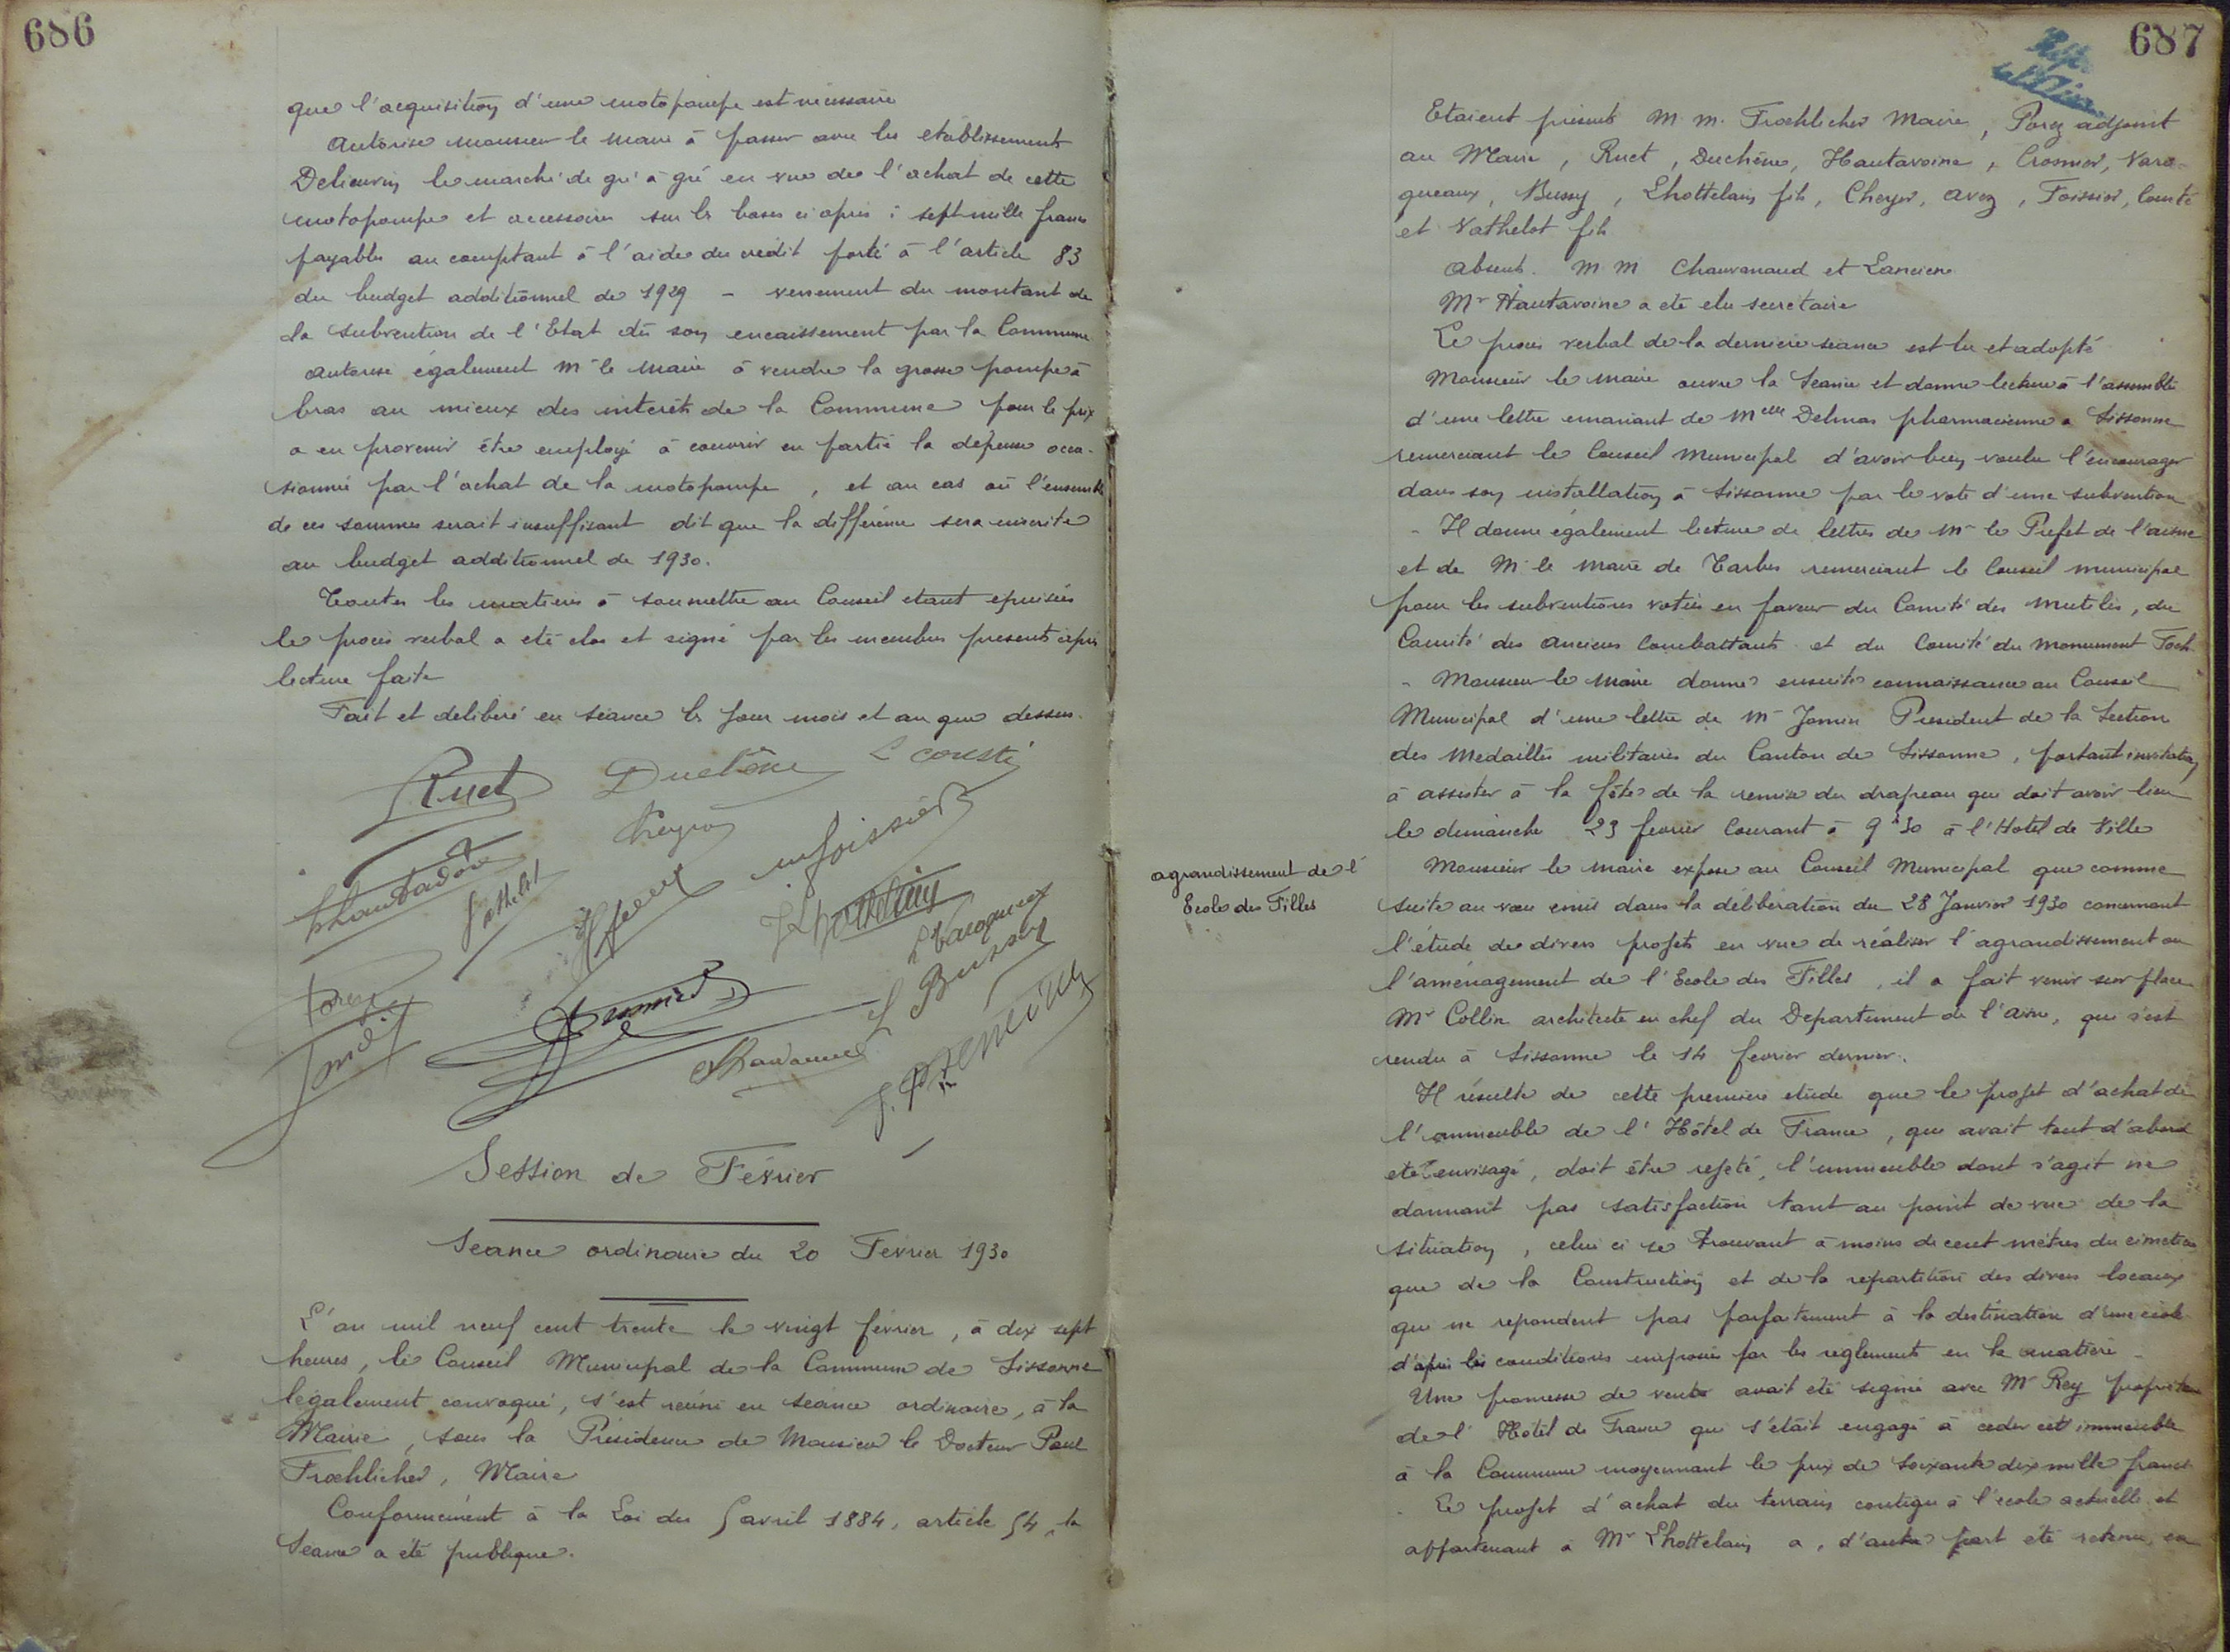 686
que l'acquisition d'une motopompe est nécessaire
Autorise monsieur le maire à passer avec les etablissements
Delieuvin le marché de gré à gré en vue de l'achat de cette
motopompe et accessoires sur les bases ci après : sept mille francs
payables au comptant à l'aide du crédit porté à l'article 83
du budget additionnel de 1929 - versement du montant de
la subvention de l'Etat dès son encaissement par la Commune
autorise également Mr le Maire à vendre la grosse pompe à
bras au mieux des interêts de la Commune pour le prix
a en provenir être employé à couvrir en partie la dépense occa-
sionnée par l'achat de la motopompe, et au cas où l'ensemble
de ces sommes serait insuffisant dit que la différence sera inscrite
au budget additionnel de 1930.
Toutes les matieres à soumettre au Conseil etant epuisées
le procès verbal a eté clos et signé par les membres présents après
lecture faite
Fait et deliberé en séance les jour mois et an que dessus.
Ruet Duchêne L Cousté
Cheyer m foissier
Hautavoine Vathelot
J Lhottelain
P Varoqueaux
L Bussy
Porez
Session de Février
Seance ordinaire du 20 Fevrier 1930
L'an mil neuf cent trente le vingt février, à dix sept
heures, le Conseil Municipal de la Commune de Sissonne
legalement convoqué, s'est réuni en séance ordinaire, à la
Mairie, sous la Présidence de Monsieur le Docteur Paul
Froehlicher, Maire
Conformément à la Loi du 5 avril 1884, article 54, la
Séance a été publique.
687
Etaient présents M.M. Froehlicher Maire, Porez adjoint
au Maire, Ruet, Duchêne, Hautavoine, Crosnier, Varo-
queaux, Bussy, Lhottelain fils, Cheyer, Avez, Foissier, Cousté
et Vathelot fils
Absents. M.M Chauvanaud et Lancien
Mr Hautavoine a eté elu secretaire
Le procès verbal de la derniere séance est lu et adopté
Monsieur le maire ouvre la Seance et donne lecture à l'assemblée
d'une lettre emanant de Melle Delmas pharmacienne a Sissonne
remerciant le Conseil Municipal d'avoir bien voulu l'encourager
dans son installation à Sissonne par le vote d'une subvention
- Il donne également lecture de lettres de Mr le Préfet de l'aisne
et de Mr le Maire de Tarbes remerciant le Conseil municipal
pour les subventions votées en faveur du Comité des Mutilés, du
Comité des Anciens Combattants et du Comité du Monument Foch
- Monsieur le Maire donne ensuite connaissance au Conseil
Municipal d'une lettre de Mr Jomin President de la Section
des Médaillés militaires du Canton de Sissonne, portant invitation
à assister à la fête de la remise du drapeau qui doit avoir lieu
le dimanche 23 fevrier Courant à 9h30 à l'Hotel de Ville
agrandissement de l'
Ecole des Filles
Monsieur le maire expose au Conseil Municipal que comme
suite au vœu emis dans la délibération du 28 Janvier 1930 concernant
l'étude de divers projets en vue de réaliser l'agrandissement ou
l'aménagement de l'Ecole des Filles, il a fait venir sur place
Mr Collin architecte en chef du Departement de l'aisne, qui s'est
rendu à Sissonne le 14 fevrier dernier.
Il résulte de cette premiere etude que le projet d'achat de
l'immeuble de l'Hôtel de France, qui avait tout d'abord
eté envisagé, doit être rejeté, l'immeuble dont s'agit ne
donnant pas satisfaction tant au point de vue de la
situation, celui ci se trouvant à moins de cent mètres du cimetière
que de la Construction et de la repartition des divers locaux
qui ne repondent pas parfaitement à la destination d'une école
d'après les conditions imposées par les règlements en la matière
Une promesse de vente avait eté signée avec Mr Rey propriétaire
de l'Hôtel de France qui s'était engagé à ceder cet immeuble
à la Commune moyennant le prix de soixante dix mille francs
- Le projet d'achat du terrain contigu à l'ecole actuelle et
appartenant à Mr Lhottelain a, d'autre part eté retenu, en